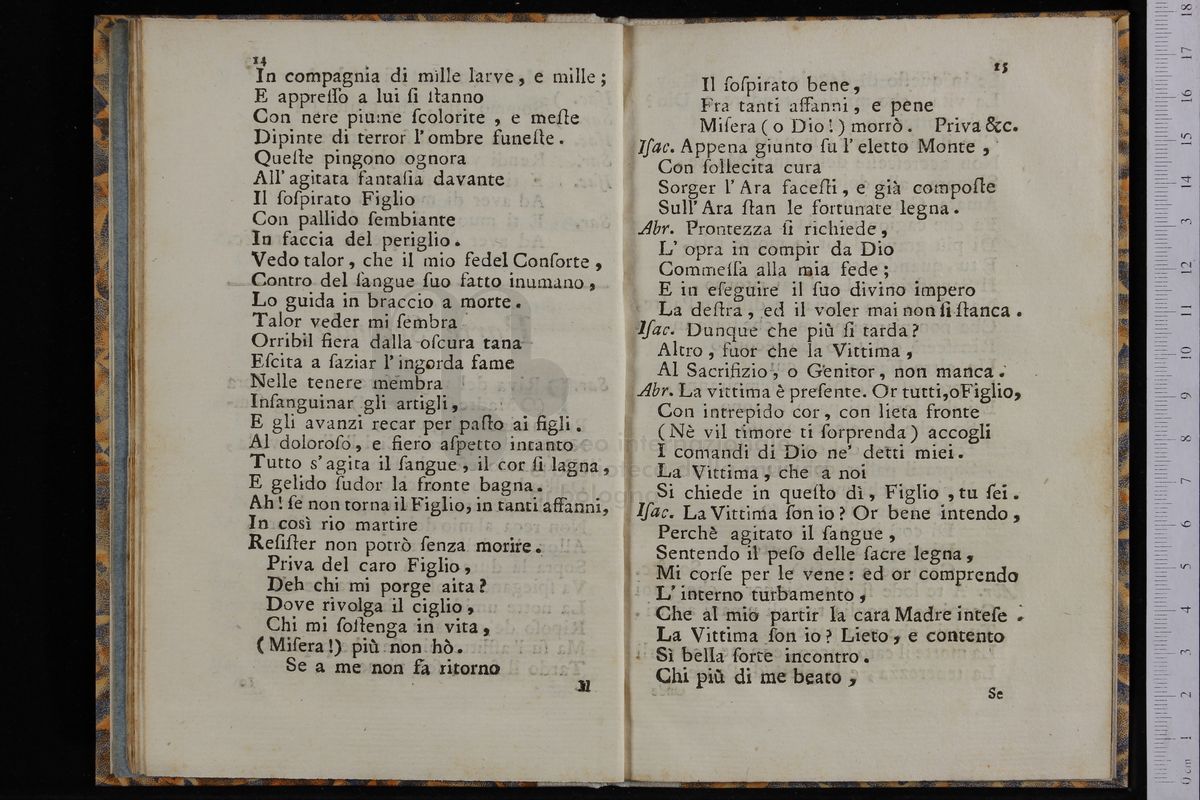 14
In compagnia di mille larve, e mille;
E appreſſo a lui ſi ſtanno
Con nere piume ſcolorite, e meſte
Dipinte di terror l'ombre funeſte.
Queſte pingono ognora
All'agitata fantaſia davante
Il ſoſpirato Figlio
Con pallido ſembiante
In faccia del periglio.
Vedo talor, che il mio fedel Conſorte,
Contro del ſangue ſuo fatto inumano,
Lo guida in braccio a morte.
Talor veder mi ſembra
Orribil fiera dalla oſcura tana
Eſcita a ſaziar l'ingorda fame
Nelle tenere membra
Inſanguinar gli artigli,
E gli avanzi recar per paſto ai figli.
Al doloroſo, e fiero aſpetto intanto
Tutto s'agita il ſangue, il cor ſi lagna,
E gelido ſudor la fronte bagna.
Ah! ſe non torna il Figlio, in tanti affanni,
In così rio martire
Reſiſter non potrò ſenza morire.
Priva del caro Figlio,
Deh chi mi porge aita?
Dove rivolga il ciglio,
Chi mi ſoſtenga in vita,
(Miſera!) più non hò.
Se a me non fa ritorno
Il
15
Il ſoſpirato bene,
Fra tanti affanni, e pene
Miſera (o Dio!) morrò. Priva &c.
Iſac. Appena giunto ſu l'eletto Monte,
Con ſollecita cura
Sorger l'Ara faceſti, e già compoſte
Sull'Ara ſtan le fortunate legna.
Abr. Prontezza ſi richiede,
L'opra in compir da Dio
Commeſſa alla mia fede;
E in eſeguire il ſuo divino impero
La deſtra, ed il voler mai non ſi ſtanca.
Iſac. Dunque che più ſi tarda?
Altro, fuor che la Vittima,
Al Sacrifizio, o Genitor, non manca.
Abr. La vittima è preſente. Or tutti, o Figlio,
Con intrepido cor, con lieta fronte
(Nè vil timore ti ſorprenda) accogli
I comandi di Dio ne' detti miei.
La Vittima, che a noi
Si chiede in queſto dì, Figlio, tu ſei.
Iſac. La Vittima ſon io? Or bene intendo,
Perchè agitato il ſangue,
Sentendo il peſo delle ſacre legna,
Mi corſe per le vene: ed or comprendo
L'interno turbamento,
Che al mio partir la cara Madre inteſe.
La Vittima ſon io? Lieto, e contento
Sì bella ſorte incontro.
Chi più di me beato,
Se